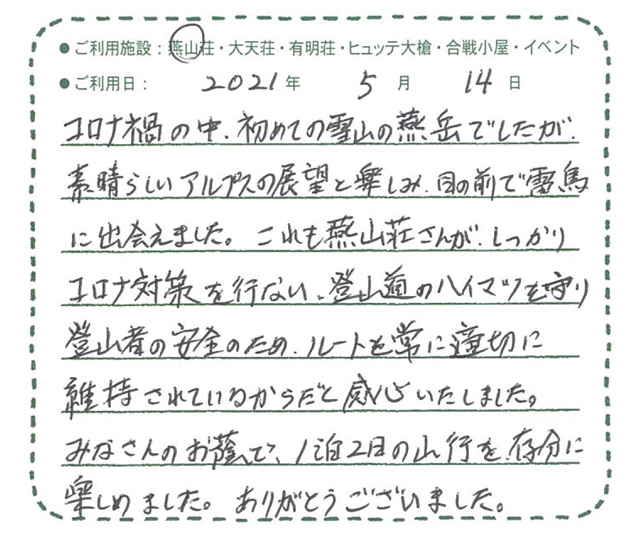 ●ご利用施設：燕山荘・大天荘・有明荘・ヒュッテ大槍・合戦小屋・イベント
●ご利用日： 2021年 5月 14日
コロナ禍の中、初めての雪山の燕岳でしたが、
素晴らしいアルプスの展望と楽しみ、目の前で雷鳥
に出会えました。これも燕山荘さんが、しっかり
コロナ対策を行ない、登山道のハイマツを守り
登山者の安全のため、ルートを常に適切に
維持されているからだと感心いたしました。
みなさんのお蔭で、1泊2日の山行を、存分に
楽しめました。ありがとうございました。